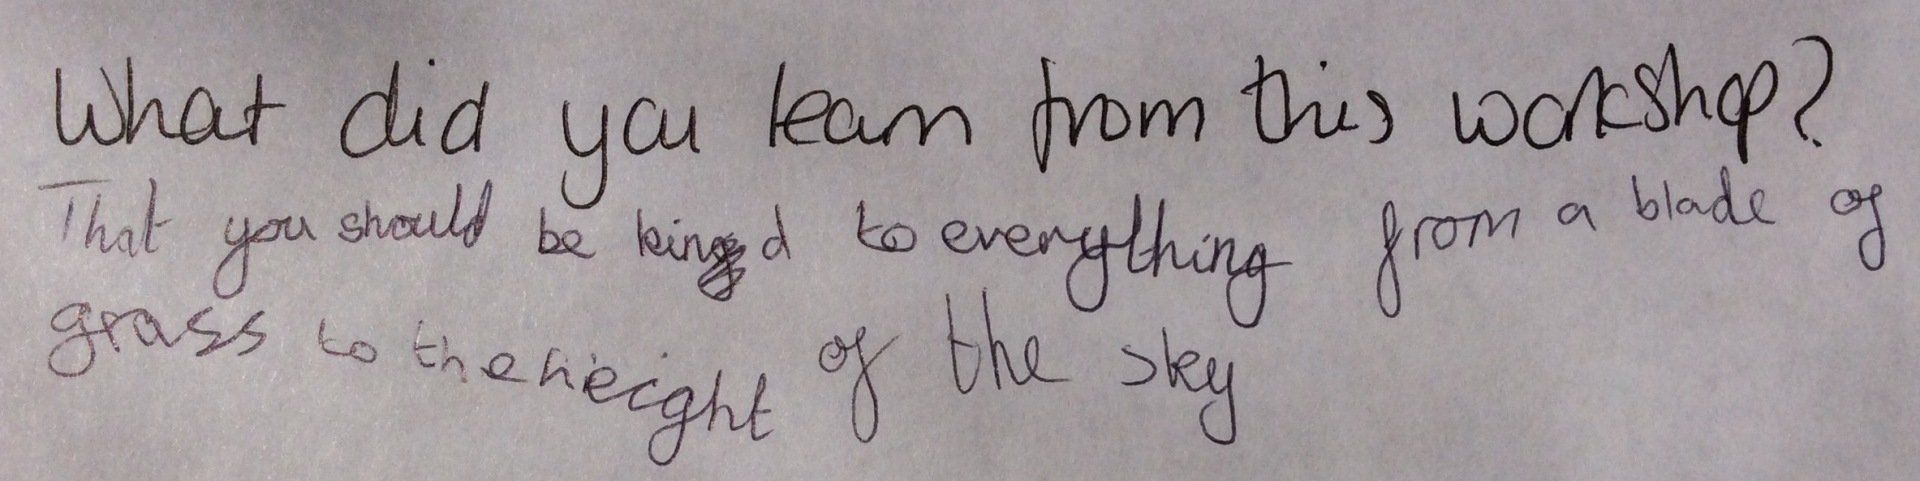 What did you learn from this workshop?
That you should be kind to everything from a blade of
grass to the height of the sky